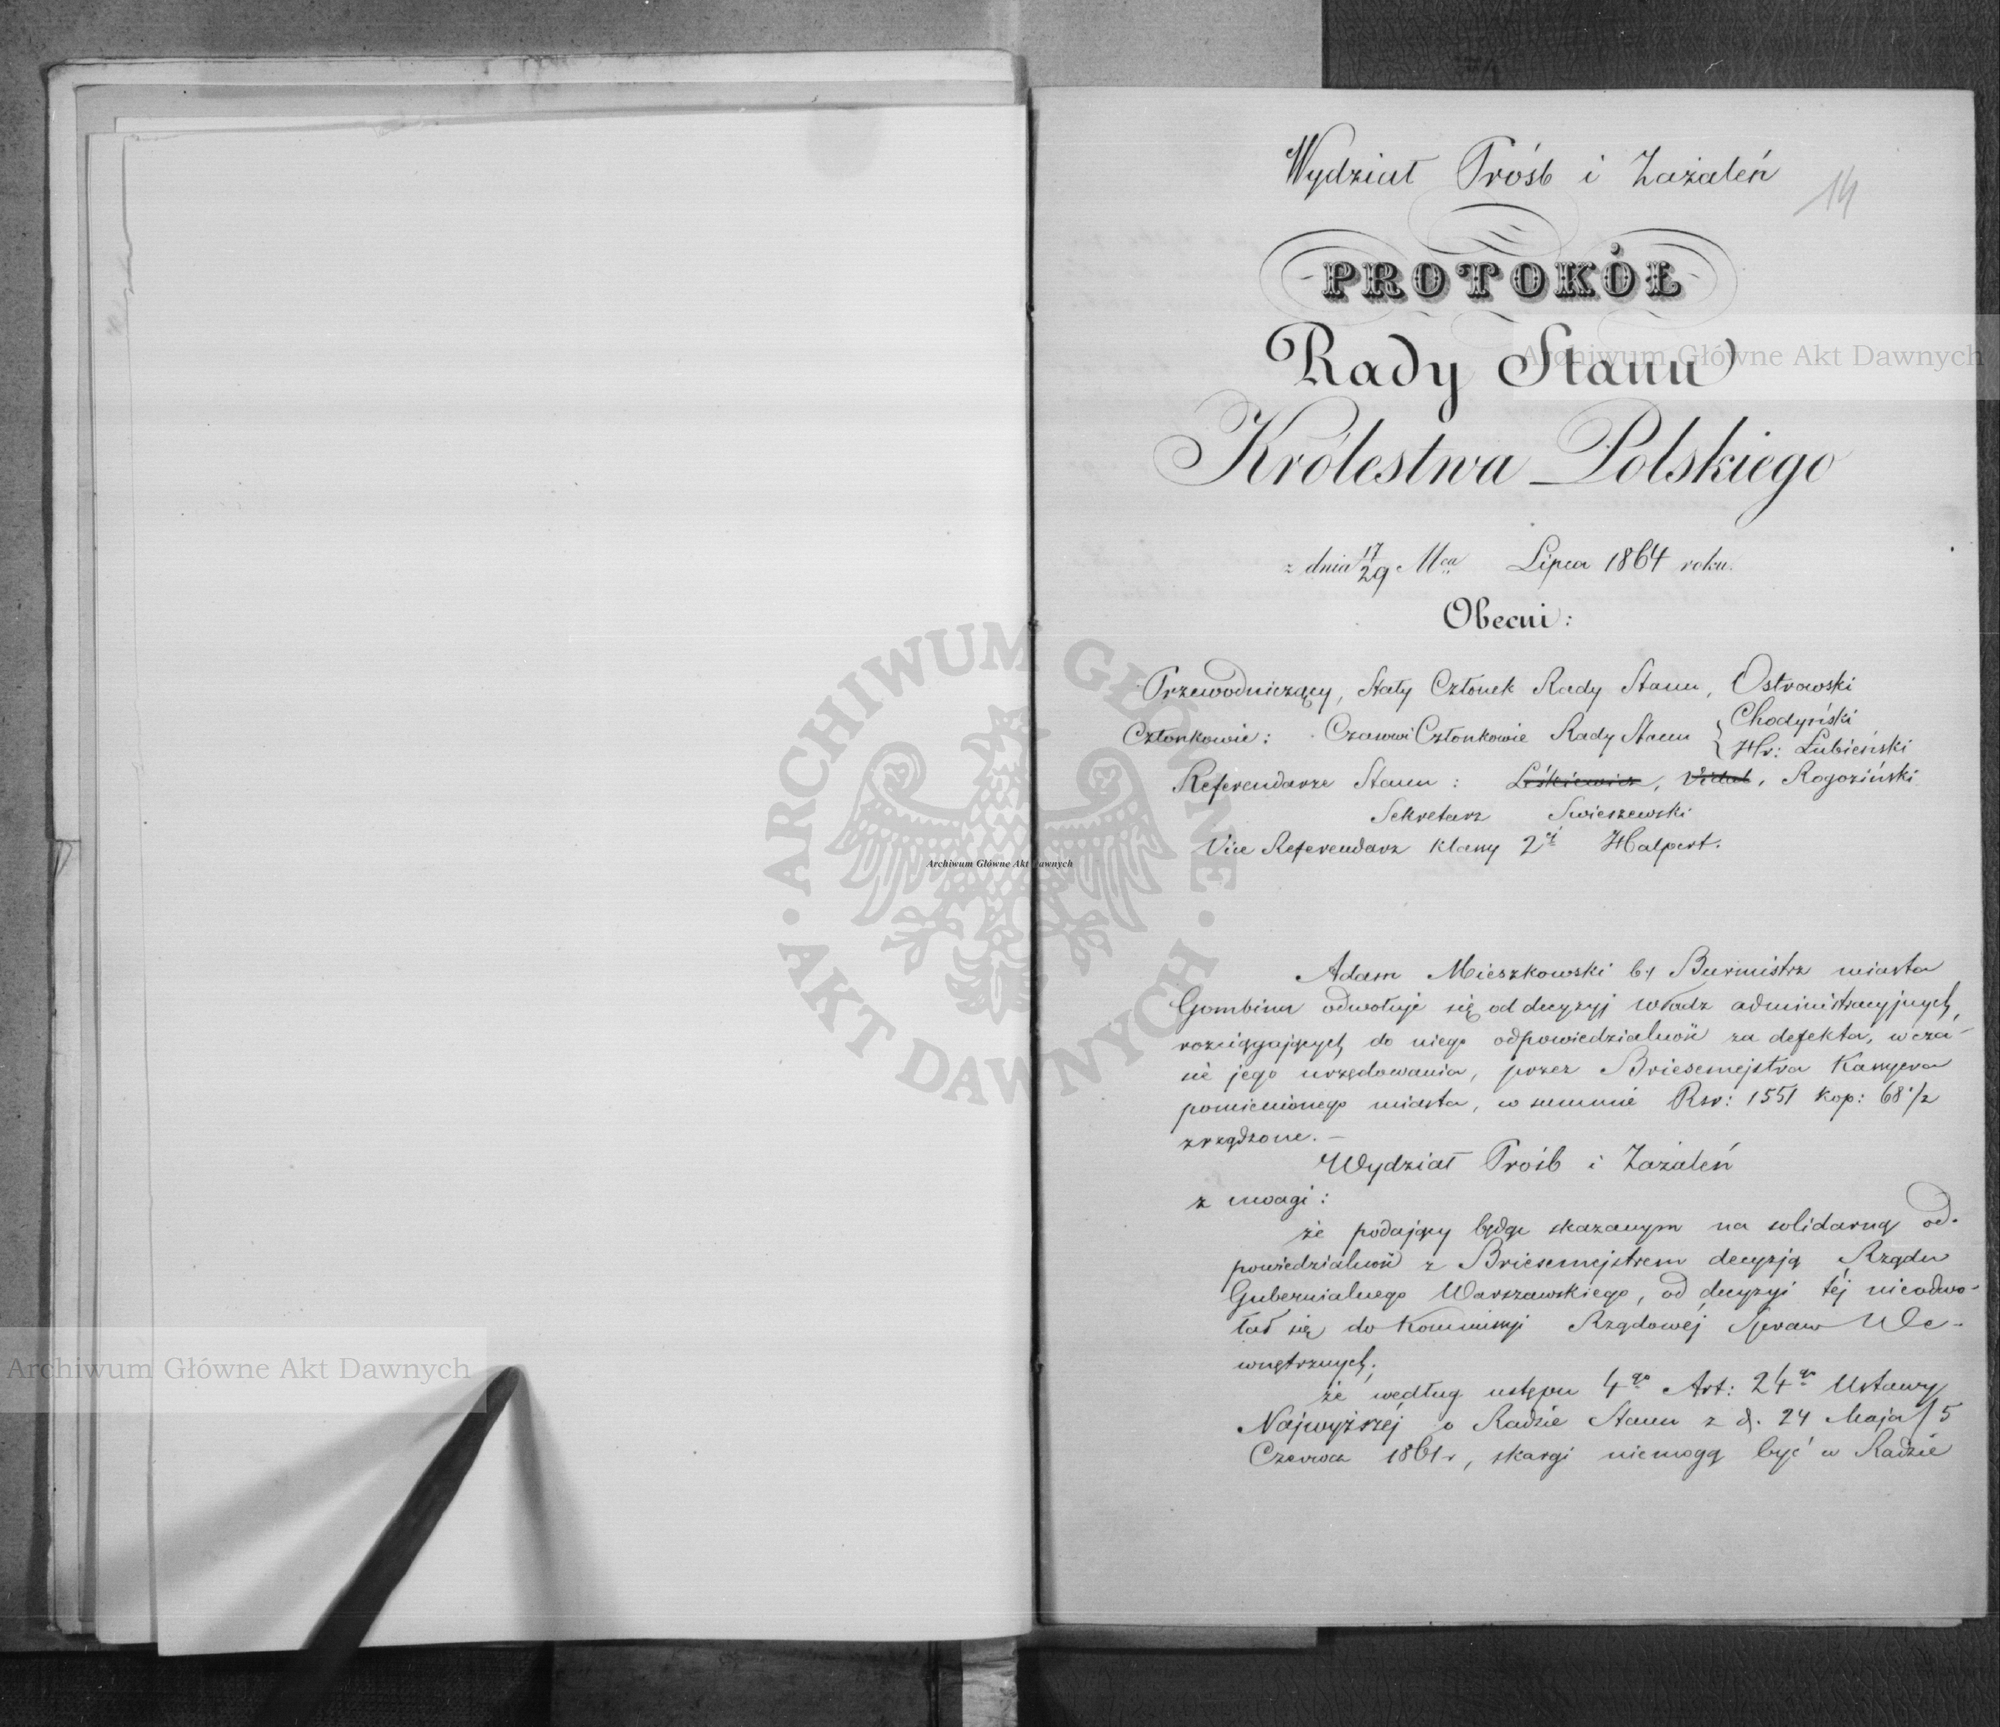 Wydział Próśb i Zażaleń
14
PROTOKÓŁ
Rady Stanu
Królestwa Polskiego
z dnia 17/29 Mca Lipca 1864 roku.
Obecni:
Przewodniczący, Stały Członek Rady Stanu, Ostrowski
Członkowie: Czasowi Członkowie Rady Stanu { Chodyński
Hr: Lubieński
Referendarze Stanu: Leśkiewicz, Vidal, Rogoziński
Sekretarz Swieszewski
Vice Referendarz klassy 2éj Halpert.
Adam Mieszkowski b. Burmistrz miasta
Gombina odwołuje się od decyzyj Władz administracyjnych,
rozciągających do niego odpowiedzialność za defekta, w cza-
sie jego urzędowania, przez Briesemejstra Kassyera
pomienionego miasta, w summie Rsr: 1551 kop: 68 1/2
zrządzone. —
Wydział Próśb i Zażaleń
z uwagi:
że podający będąc skazanym na solidarną od-
powiedzialność z Briesemejstrem decyzją Rządu
Gubernialnego Warszawskiego, od decyzyi téj nieodwo-
łał się do Kommissyi Rządowéj Spraw We-
wnętrznych;
że według ustępu 4go Art: 24go Ustawy
Najwyższéj o Radzie Stanu z d. 24 Maja / 5
Czerwca 1861 r, skargi niemogą być w Radzie
Archiwum Główne Akt Dawnych
Archiwum Główne Akt Dawnych
Archiwum Główne Akt Dawnych
ARCHIWUM GŁÓWNE · AKT DAWNYCH ·